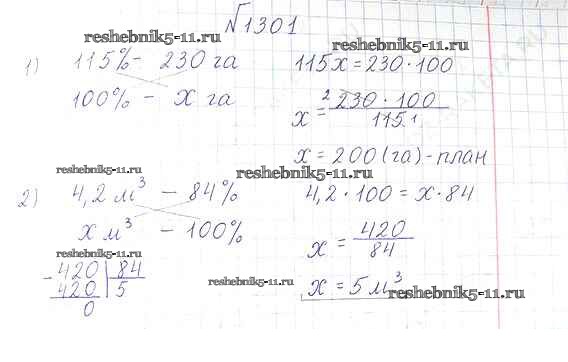 √1301
reshebnik5-11.ru
1) 115% - 230 га
100% - x га
reshebnik5-11.ru
115x = 230 · 100
x = 230 · 100 / 115
2 1
x = 200 (га) - план
reshebnik5-11.ru
reshebnik5-11.ru
2) 4,2 м³ - 84%
x м³ - 100%
4,2 · 100 = x · 84
x = 420 / 84
x = 5 м³
reshebnik5-11.ru
- 420 | 84
420 | 5
0
reshebnik5-11.ru
reshebnik5-11.ru